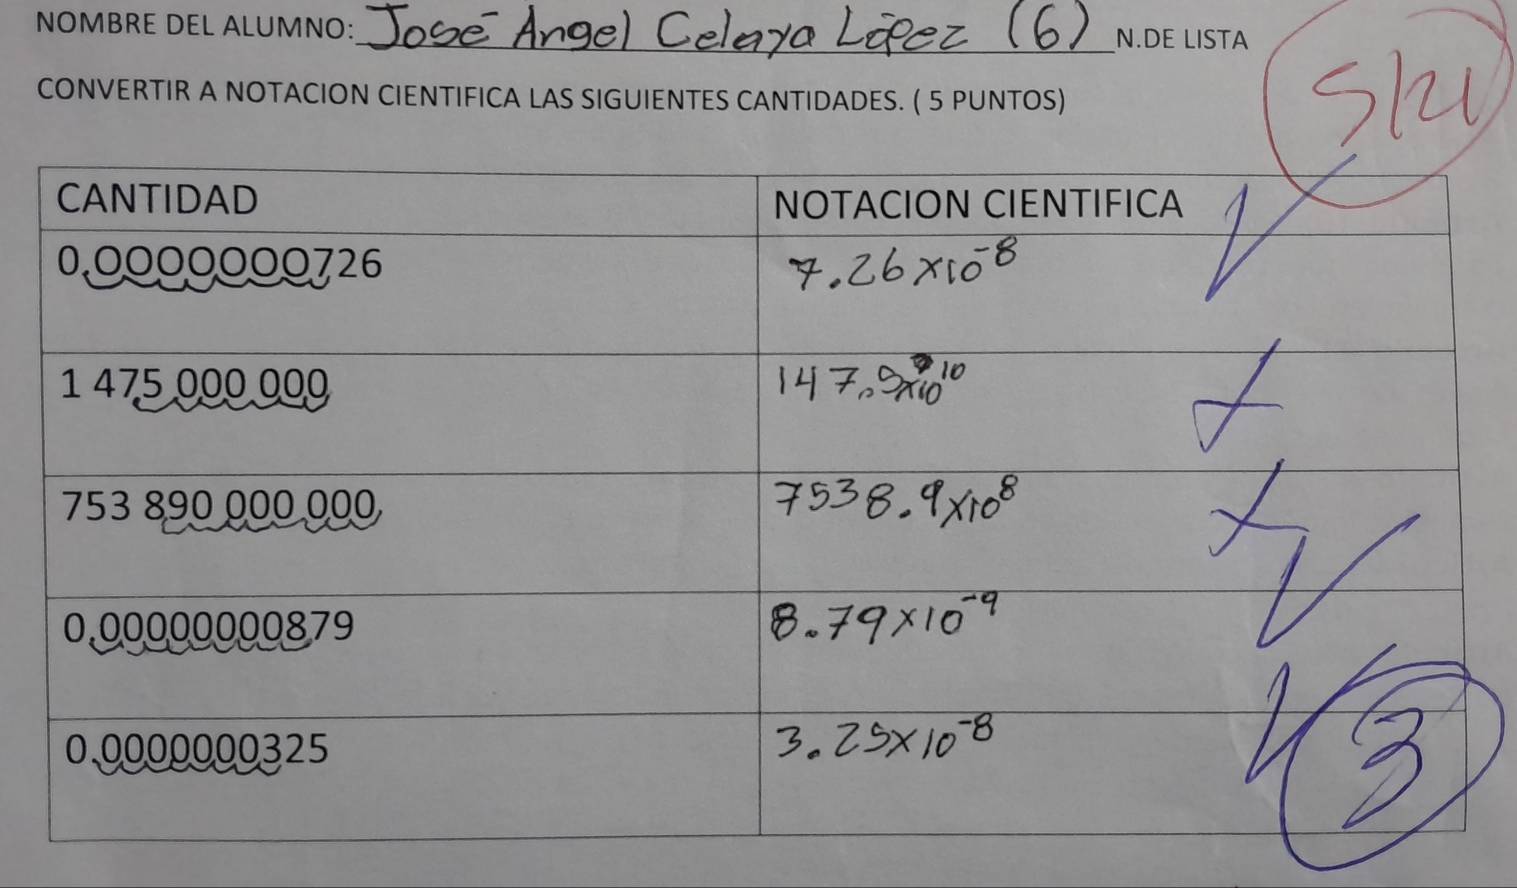 NOMBRE DEL ALUMNO: José Angel Celaya López (6) N.DE LISTA
CONVERTIR A NOTACION CIENTIFICA LAS SIGUIENTES CANTIDADES. ( 5 PUNTOS)
5/21
CANTIDAD NOTACION CIENTIFICA
0.0000000726 7.26x10^-8
1 475 000 000 147.5x10^10
753 890 000 000 7538.9x10^8
0.00000000879 8.79x10^-9
0.0000000325 3.25x10^-8
3